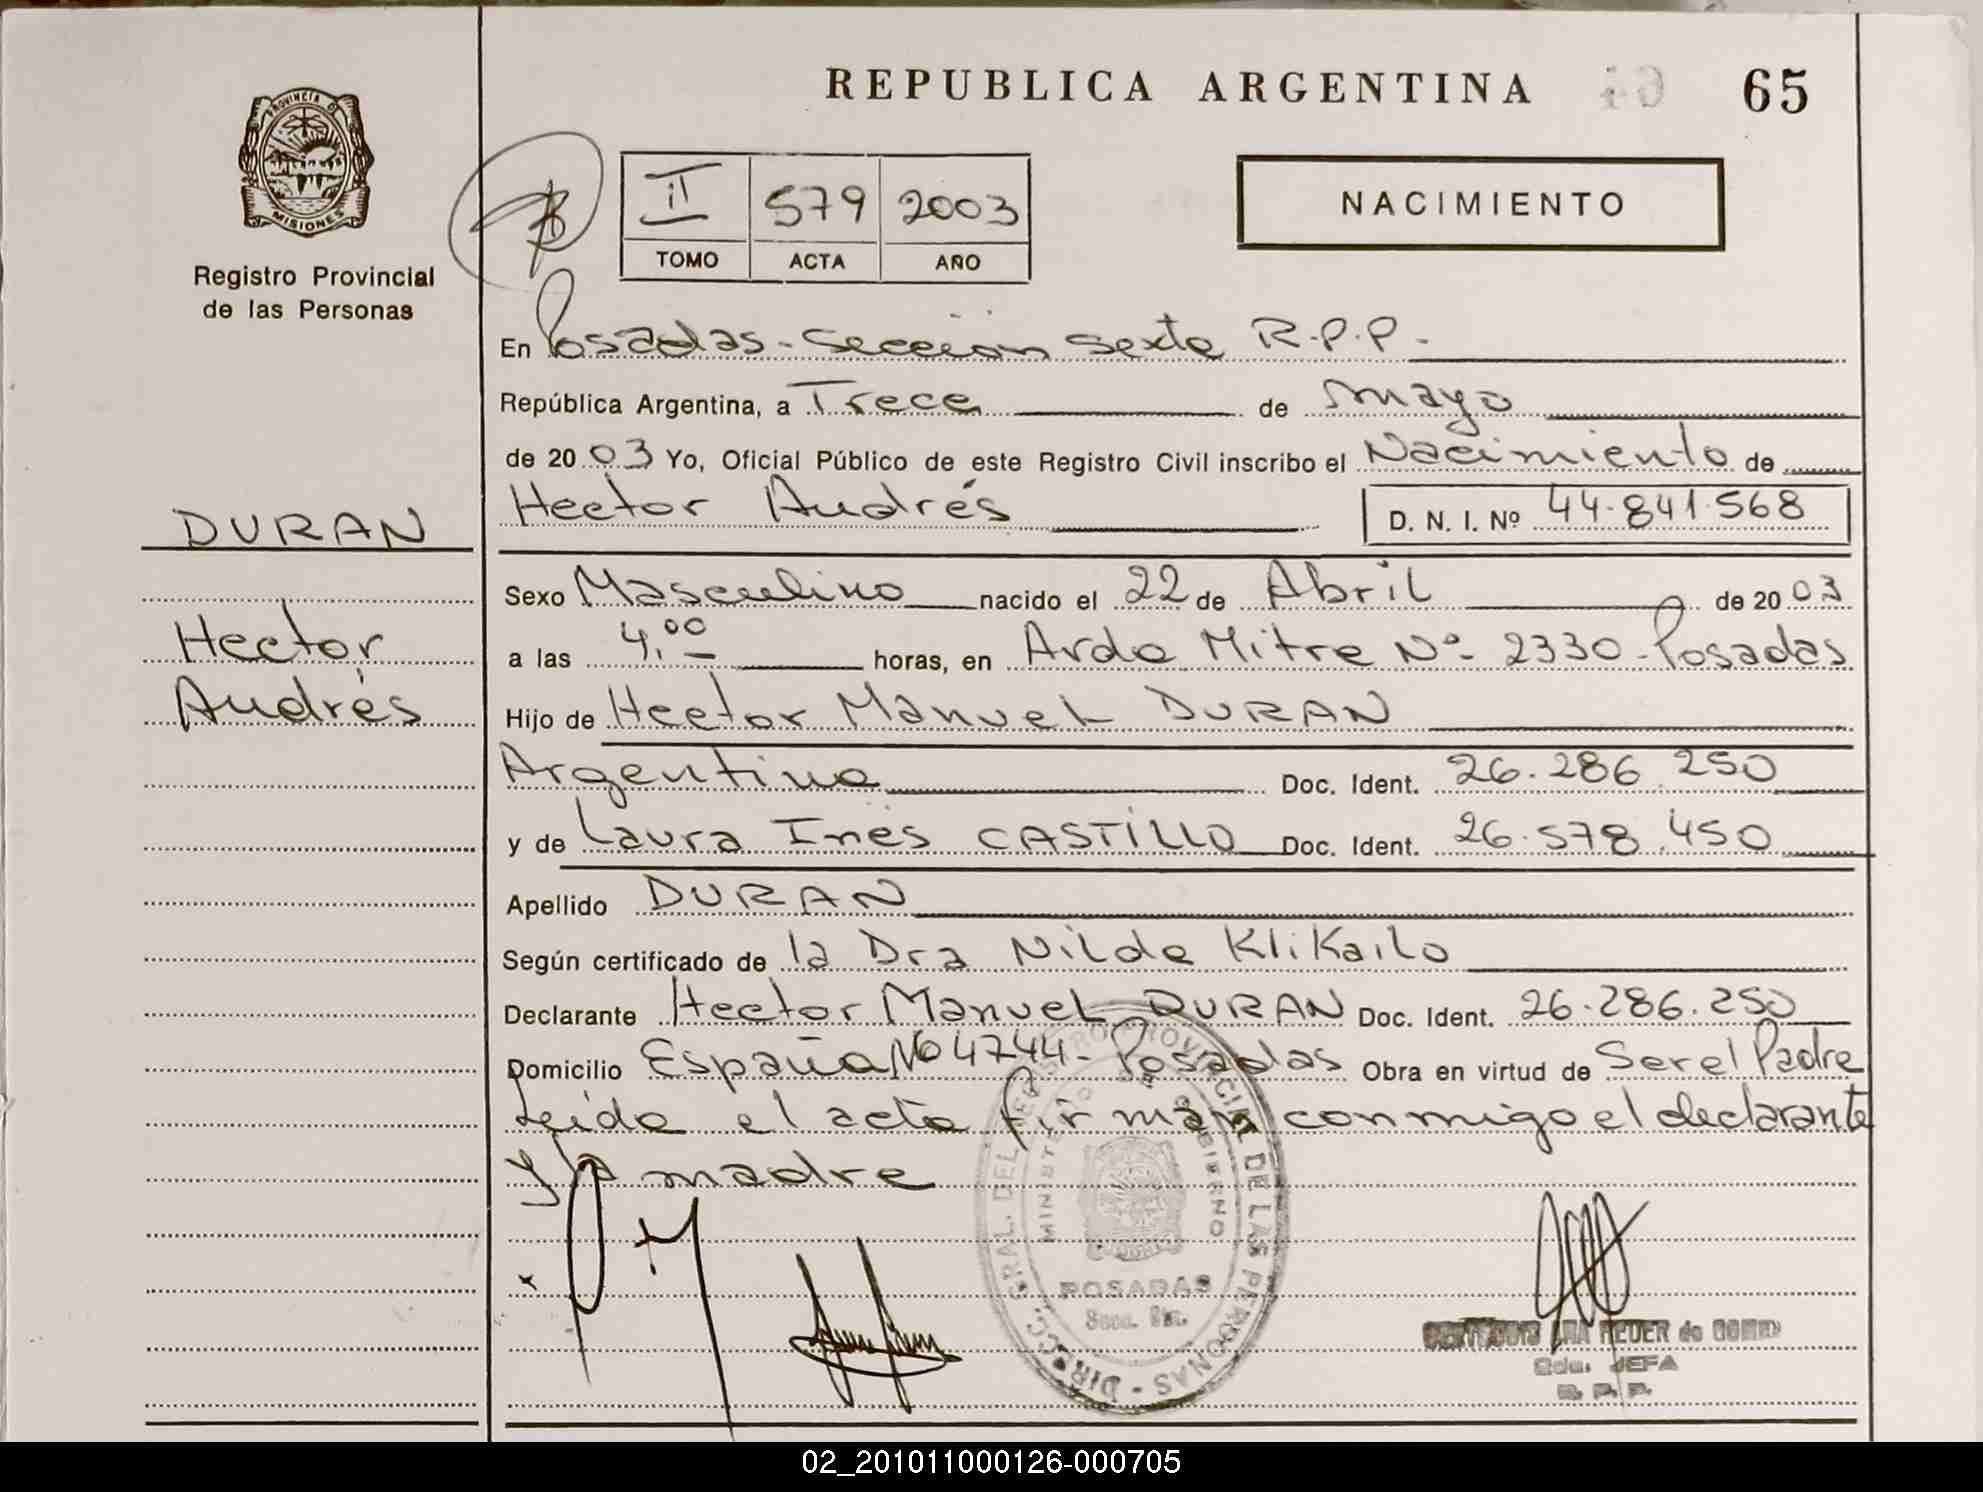 REPUBLICA ARGENTINA 65
PROVINCIA DE
MISIONES
Registro Provincial
de las Personas
II 579 2003
TOMO ACTA AÑO
NACIMIENTO
En Posadas - Sección Sexta R.P.P.-
República Argentina, a Trece de mayo
de 2003 Yo, Oficial Público de este Registro Civil inscribo el Nacimiento de
Hector Andrés D. N. I. Nº 44.841.568
DURAN
Hector
Andrés
Sexo Masculino nacido el 22 de Abril de 2003
a las 4,00 horas, en Avda Mitre Nº 2330 - Posadas
Hijo de Hector Manuel DURAN
Argentina Doc. Ident. 26.286.250
y de Laura Inés CASTILLO Doc. Ident. 26.578.450
Apellido DURAN
Según certificado de la Dra Nilda Klikailo
Declarante Hector Manuel DURAN Doc. Ident. 26.286.250
Domicilio España Nº 4744 - Posadas Obra en virtud de Ser el Padre
Leída el acta firman conmigo el declarante
y la madre
DIRECC. GRAL. DEL REGISTRO PROVINCIAL DE LAS PERSONAS
MINISTERIO DE GOBIERNO
POSADAS
Secc.
de
JEFA
R. P. P.
02_201011000126-000705